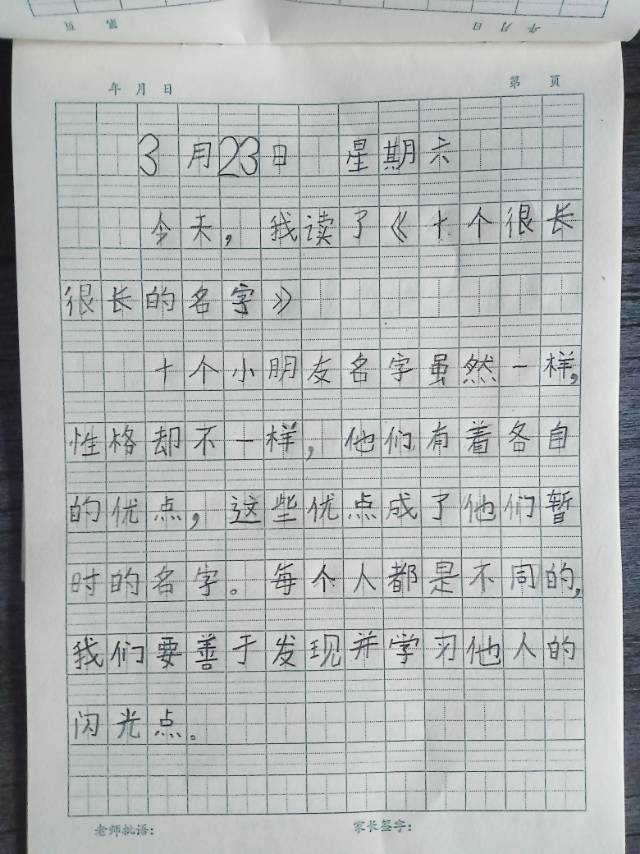 第 页 年 月 日
年 月 日 第 页
3月23日 星期六
今天，我读了《十个很长
很长的名字》
十个小朋友名字虽然一样，
性格却不一样，他们有着各自
的优点，这些优点成了他们暂
时的名字。每个人都是不同的，
我们要善于发现并学习他人的
闪光点。
老师批语： 家长签字：